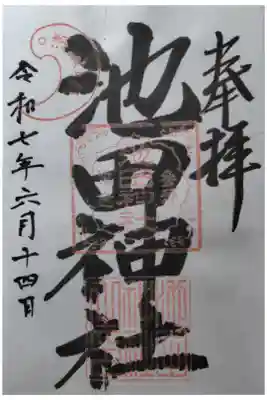 奉拝
池田神社
令和七年六月十四日